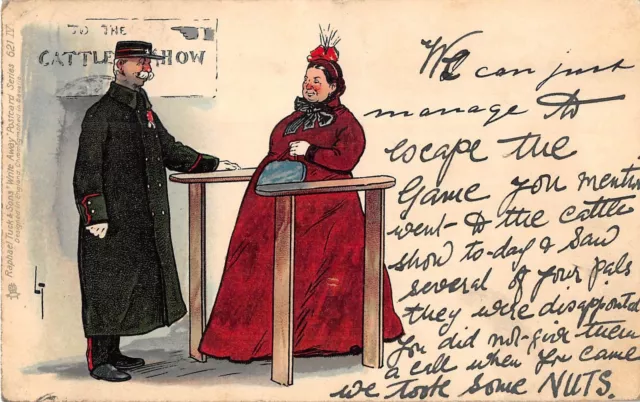 TO THE
CATTLE SHOW
Raphael Tuck & Sons' "Write Away" Postcard Series 621 IV.
We can just
manage to
escape the
Game you mentn
went to the cattle
show to-day & saw
several of your pals
they were disappointed
you did not give them
a call when you came
we took some NUTS.